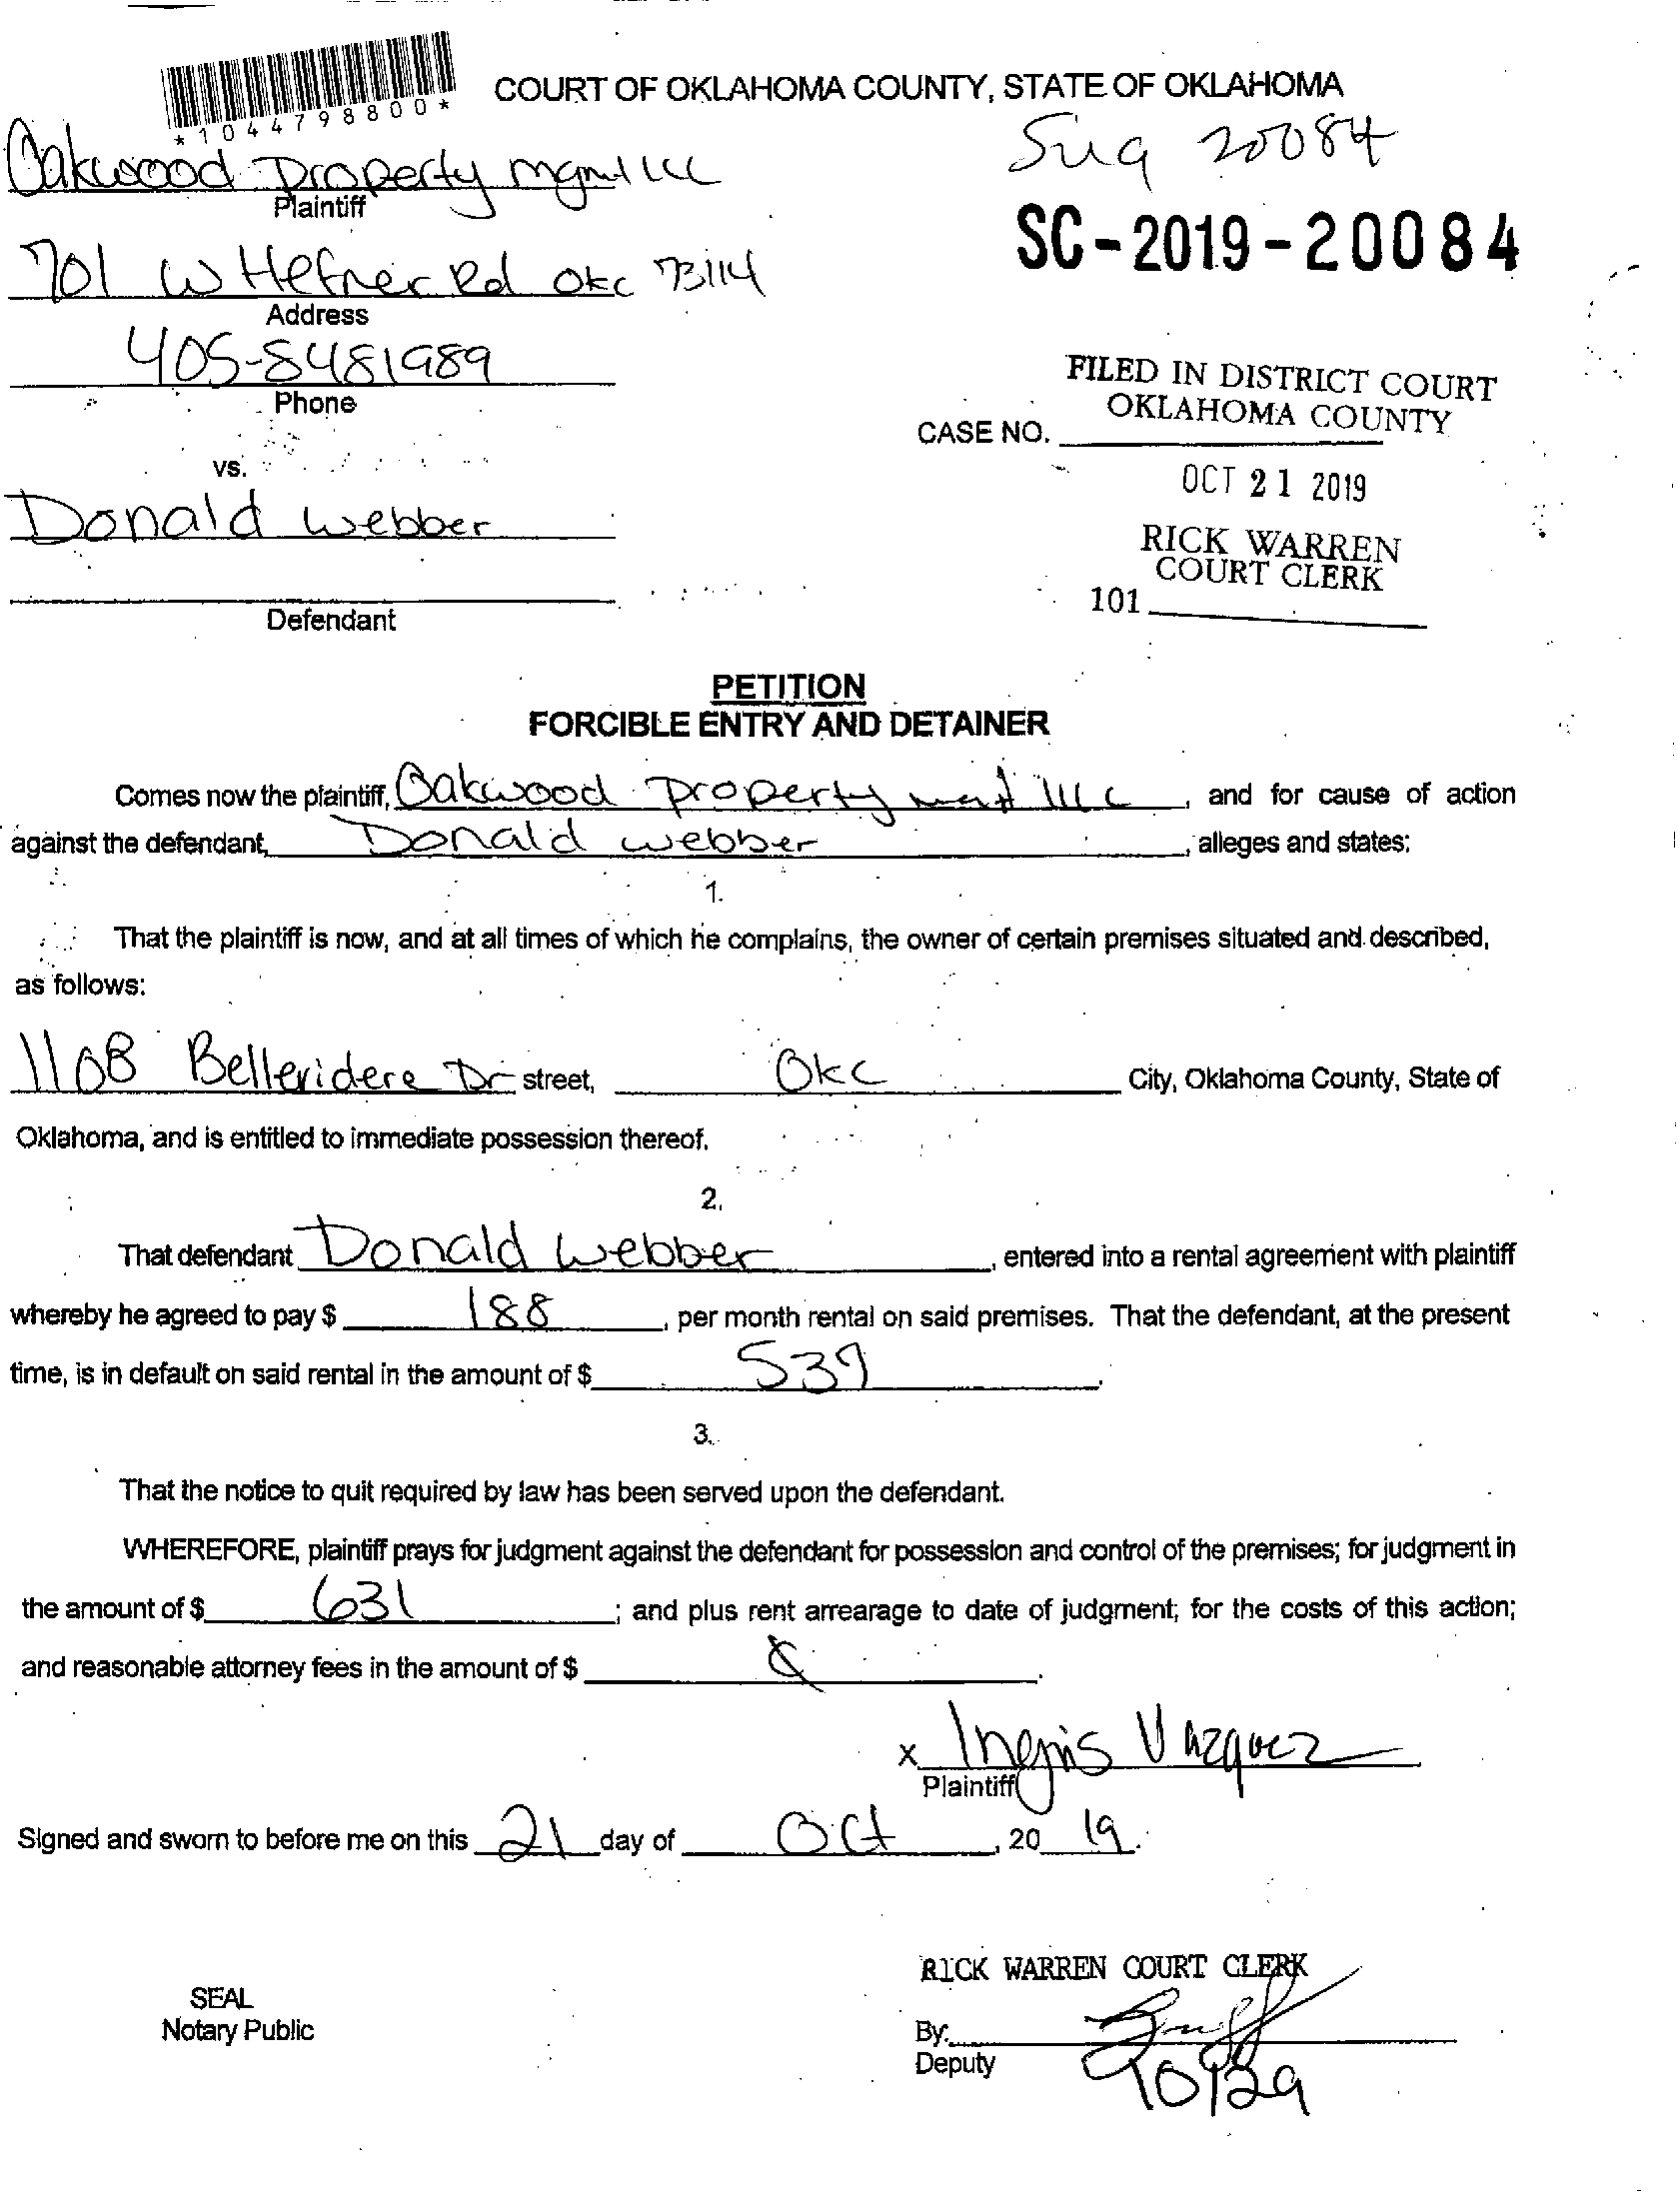 *1044798800*
COURT OF OKLAHOMA COUNTY, STATE OF OKLAHOMA
20084
Oakwood Property mgmt LLC
Plaintiff
SC-2019-20084
701 W Hefner Rd Okc 73114
Address
405-8481989
Phone
FILED IN DISTRICT COURT
OKLAHOMA COUNTY
CASE NO.
vs.
OCT 21 2019
Donald Webber
RICK WARREN
COURT CLERK
101
Defendant
PETITION
FORCIBLE ENTRY AND DETAINER
Comes now the plaintiff, Oakwood Property LLC, and for cause of action
against the defendant, Donald Webber, alleges and states:
1.
That the plaintiff is now, and at all times of which he complains, the owner of certain premises situated and described,
as follows:
1108 Belleridere Dr street, Okc City, Oklahoma County, State of
Oklahoma, and is entitled to immediate possession thereof.
2.
That defendant Donald Webber, entered into a rental agreement with plaintiff
whereby he agreed to pay $ 188, per month rental on said premises. That the defendant, at the present
time, is in default on said rental in the amount of $ 539.
3.
That the notice to quit required by law has been served upon the defendant.
WHEREFORE, plaintiff prays for judgment against the defendant for possession and control of the premises; for judgment in
the amount of $ 631; and plus rent arrearage to date of judgment; for the costs of this action;
and reasonable attorney fees in the amount of $
x Vazquez
Plaintiff
Signed and sworn to before me on this 21 day of Oct, 20 19.
RICK WARREN COURT CLERK
SEAL
Notary Public
By:
Deputy